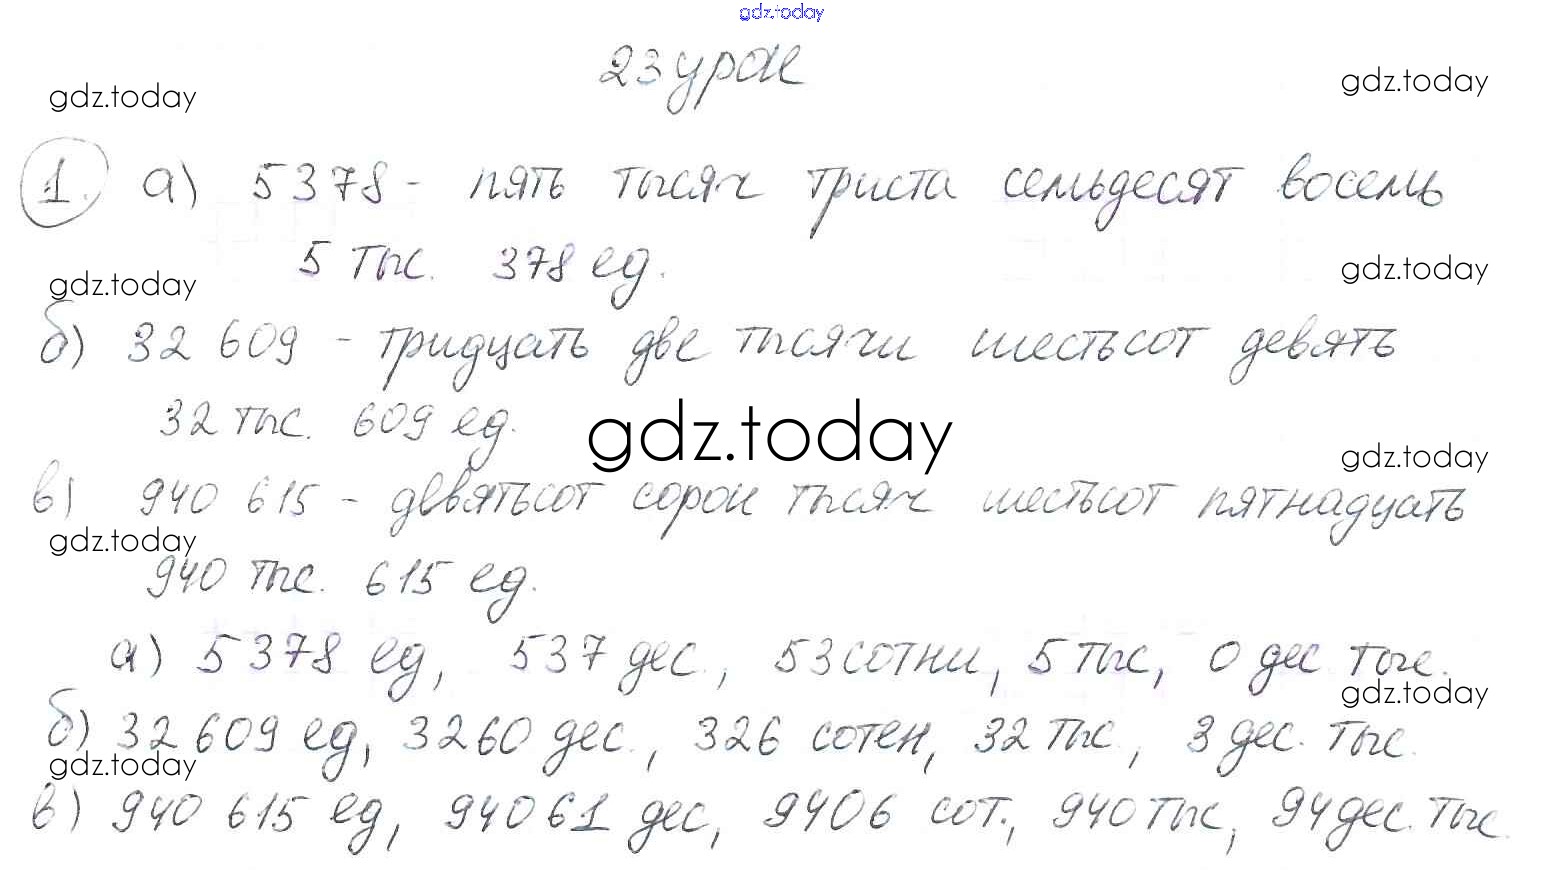 gdz.today
23 урок
gdz.today gdz.today
1. а) 5378 - пять тысяч триста семьдесят восемь
5 тыс. 378 ед.
gdz.today gdz.today
б) 32 609 - тридцать две тысячи шестьсот девять
32 тыс. 609 ед.
gdz.today
gdz.today
в) 940 615 - девятьсот сорок тысяч шестьсот пятнадцать
gdz.today
940 тыс. 615 ед.
а) 5378 ед, 537 дес., 53 сотни, 5 тыс, 0 дес тыс.
gdz.today
б) 32 609 ед, 3260 дес., 326 сотен, 32 тыс., 3 дес. тыс.
gdz.today
в) 940 615 ед, 94061 дес, 9406 сот., 940 тыс, 94 дес. тыс.